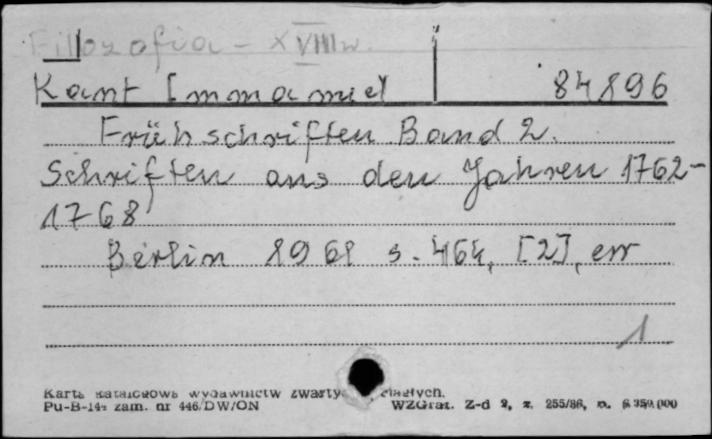 Filozofia - XVIII w.
Kant Immanuel 84896
Frühschriften Band 2.
Schriften aus den Jahren 1762-
1768
Berlin 1961 s. 464, [2], err
1
Karta katalogowa wydawnictw zwartych
Pu-B-14z zam. nr 446/DW/ON WZGraf. Z-d 2, z. 255/86, n.